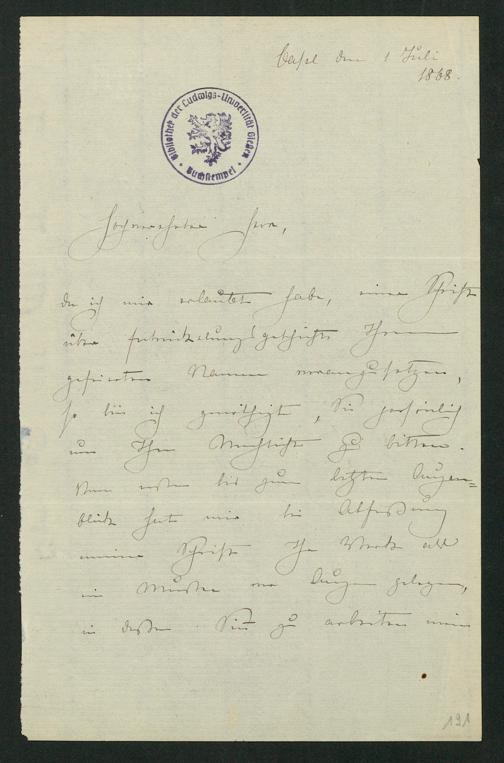 Basel den 1 Juli
1868.
Bibliothek der Ludwigs-Universität Gießen
Buchstempel
Hochverehrter Herr,
da ich mir erlaubt habe, einer Schrift
über Entwickelungsgeschichte Ihren
gefeierten Namen voranzusetzen,
so bin ich genöthigt, Sie persönlich
um Ihre Nachsicht zu bitten.
Vom ersten bis zum letzten Augen=
blick hat mir bei Abfaßung
meiner Schrift Ihr Werk als
ein Muster vor Augen gelegen,
in deßen Sinn zu arbeiten mein
191